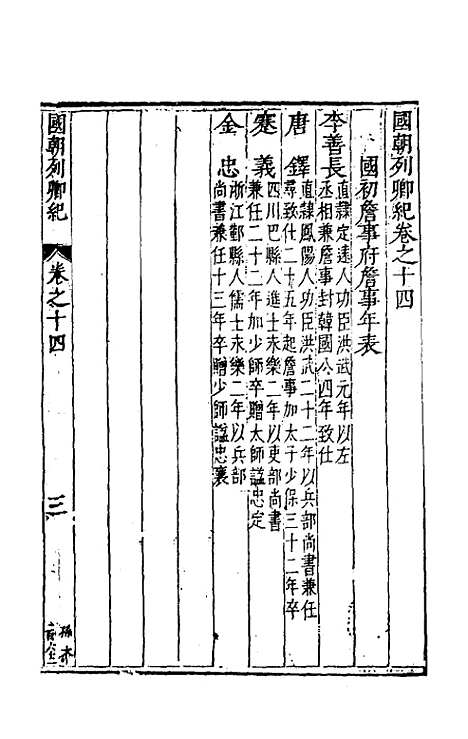 國朝列卿紀卷之十四
國初詹事府詹事年表
李善長
直隸定遠人功臣洪武元年以左
丞相兼詹事封韓國公四年致仕
唐鐸
直隸鳳陽人功臣洪武二十二年以兵部尚書兼任
尋致仕二十五年起詹事加太子少保三十二年卒
蹇義
四川巴縣人進士永樂二年以吏部尚書
兼任二十二年加少師卒贈太師謚忠定
金忠
浙江鄞縣人儒士永樂二年以兵部
尚書兼任十三年卒贈少師謚忠襄
國朝列卿紀
卷之十四
三